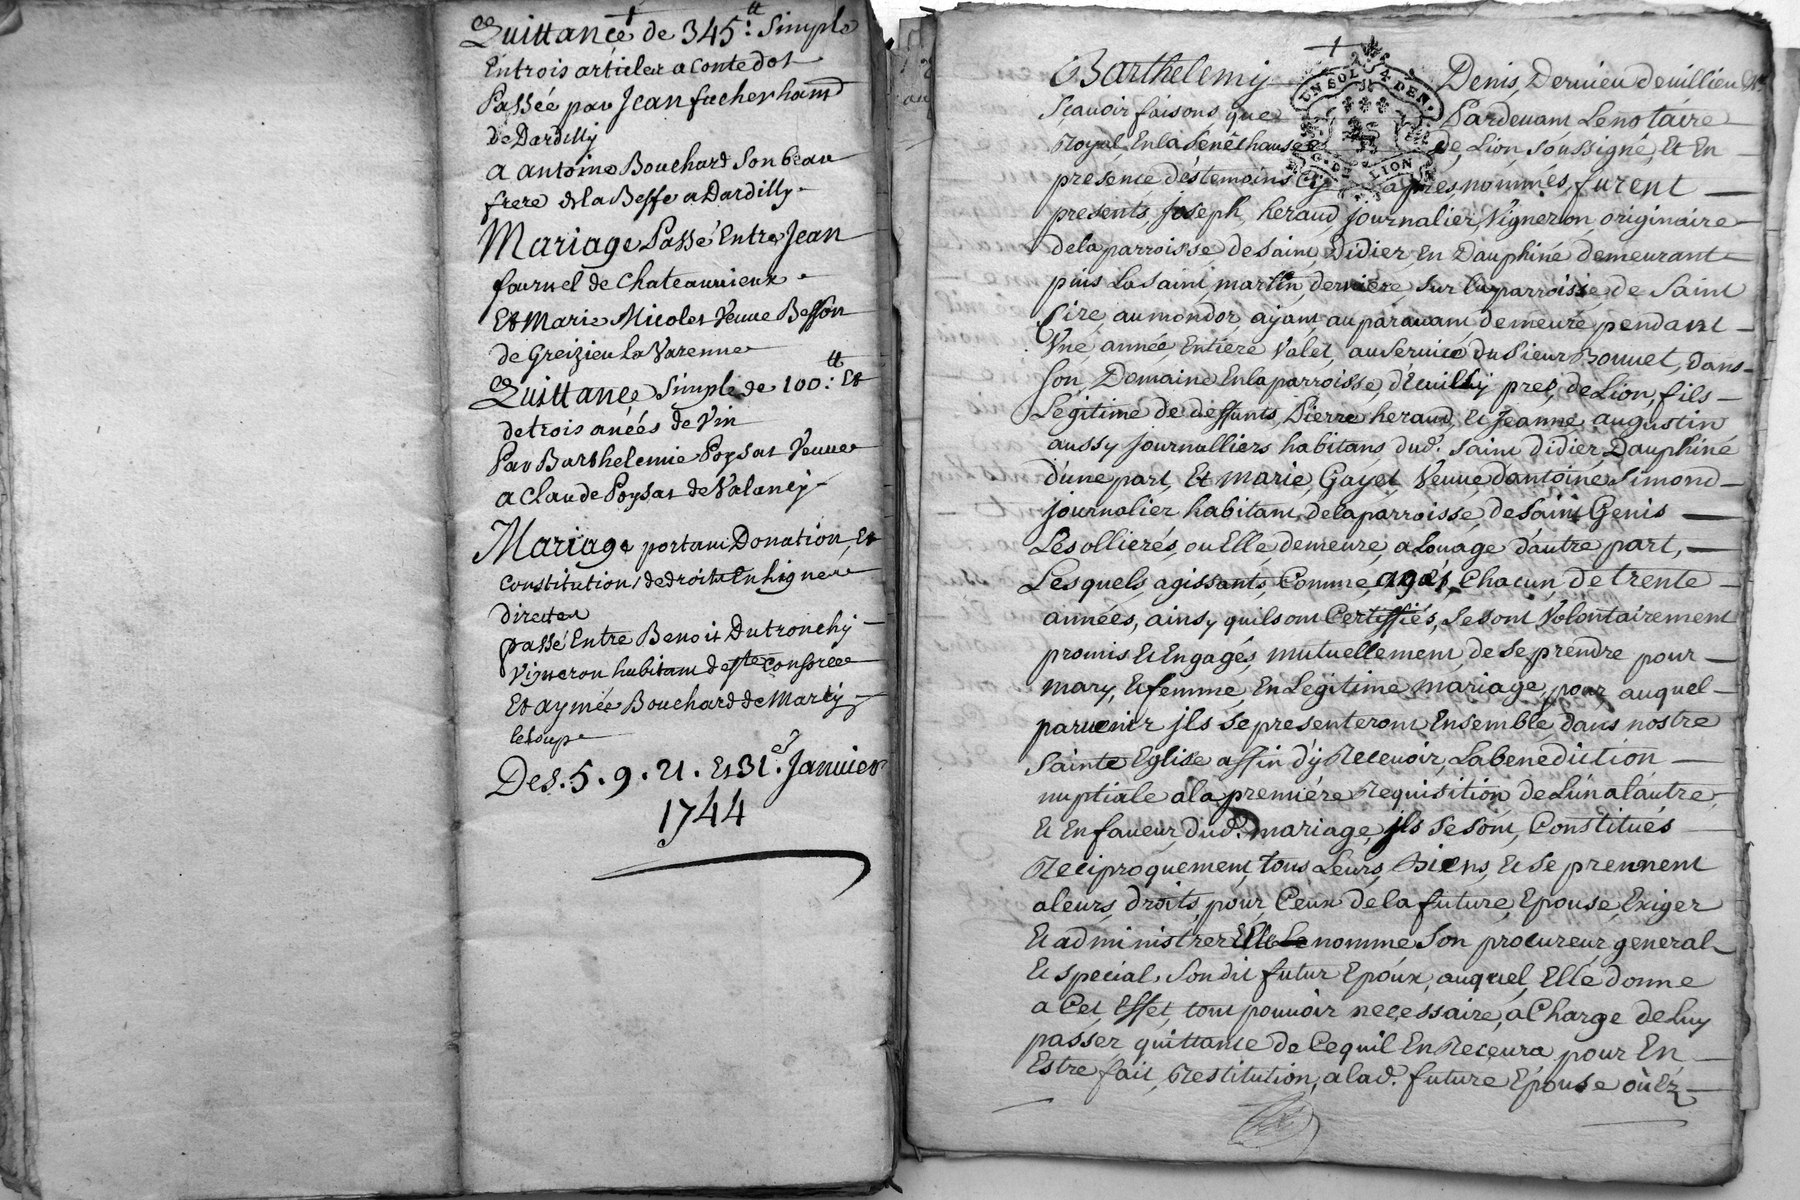 Quittance de 345.tt Simple
En trois articles a conte dot
Passée par Jean facherhand
de Dardilly
a antoine Bouchard Son beau
frere de la Beffe a Dardilly
Mariage Passé Entre Jean
fournel de Chateauvieux
Et Marie Nicolet Veuve Besson
de Greizieu la Varenne
Quittance Simple de 100.tt Et
de trois anées de Vin
Par Barthelemie Poysat Veuve
a Claude Poysat de Valancy
Mariage portant Donation, Et
Constitution de droits En ligne
directe
passé Entre Benoit Dutronchy
Vigneron habitant de Ste Consorce
Et aymée Bouchard de Marcy
le loup
Des. 5. 9. 21. Et 31.e Janvier
1744
Barthelemy Denis, Dervieu de villieu
UN SOL 4 DEN.
G. DE LION
Scavoir faisons que Pardevant Le notaire
Royal En la Senêchaussée De Lion, Soussigné, Et En
presence des temoins Cy apres nommés, furent
presents, joseph heraud journalier, Vigneron originaire
de la parroisse de Saint Didier En Dauphiné demeurant
puis La Saint martin derniere, Sur la parroisse de Saint
Cire au mondor, ajant au paravant demeuré pendant
Vne année Entiere Valet, au Service du Sieur Bonnet, dans
Son Domaine En la parroisse, d'Ecully prés, de Lion, fils
Legitime de deffunts Pierre heraud, et Jeanne augustin
aussy journalliers habitans dud. Saint Didier, Dauphiné
d'une part, Et marie, Gayet Veuve, d'antoine Simond
journalier habitant de la parroisse, de Saint Genis
Les ollieres, ou Elle, demeure, a Louage d'autre part,
Lesquels, agissants, Comme, agés, Chacun, de trente
années, ainsy quils ont Certiffiés, Se sont Volontairement
promis Et Engagés, mutuellement, de Se prendre pour
mary, Et femme, En Legitime mariage, pour auquel
parvenir jls Se presenteront Ensemble, dans nostre
Sainte Eglise affin d'y Recevoir, La benediction
nuptiale a la premiére Requisition de L'un a l'autre,
Et En faveur dud. mariage, jls Se sont, Constitués
Reciproquement, tous Leurs, Biens, Et Se prennent
a leurs, droits, pour, Ceux de la future, Epouse, Exiger
Et administrer Elle Le nomme Son procureur general
Et special, Son dit futur Epoux, auquel, Elle donne
a Cet, Effet, tout pouvoir necessaire, a Charge de luy
passer quittance de Ce quil En Recevra pour En
Estre fait, Restitution, a lad. future Epouse où Ez